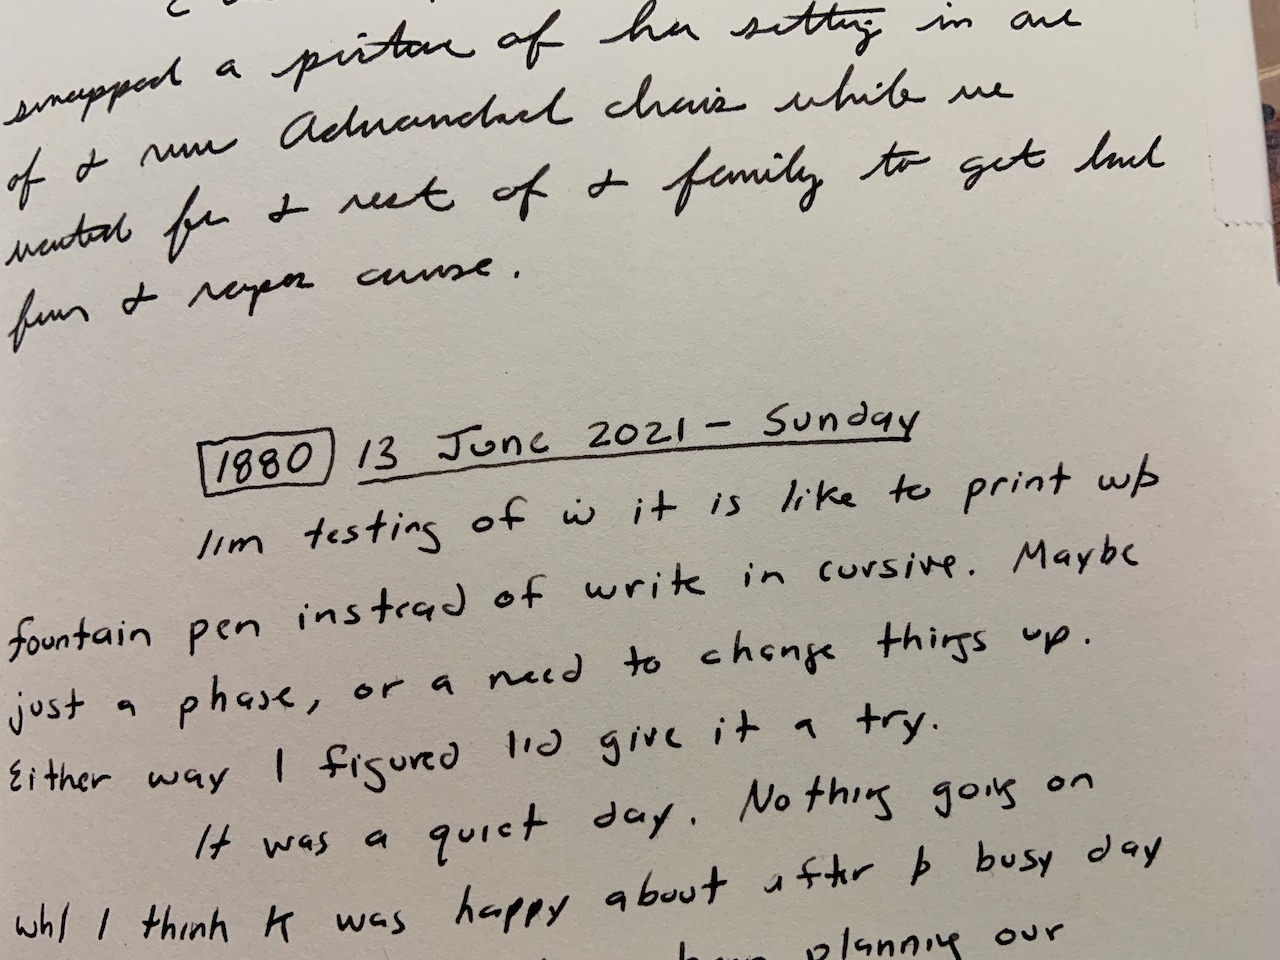 snapped a picture of her sitting in one
of & new Adirondack chairs while we
waited for & rest of & family to get back
from &
1880 13 June 2021 - Sunday
I'm testing of it is like to print
fountain pen instead of write in cursive. Maybe
just a phase, or a need to change things up.
Either way I figured I'd give it a try.
It was a quiet day. Nothing going on
I think K was happy about after busy day
planning our